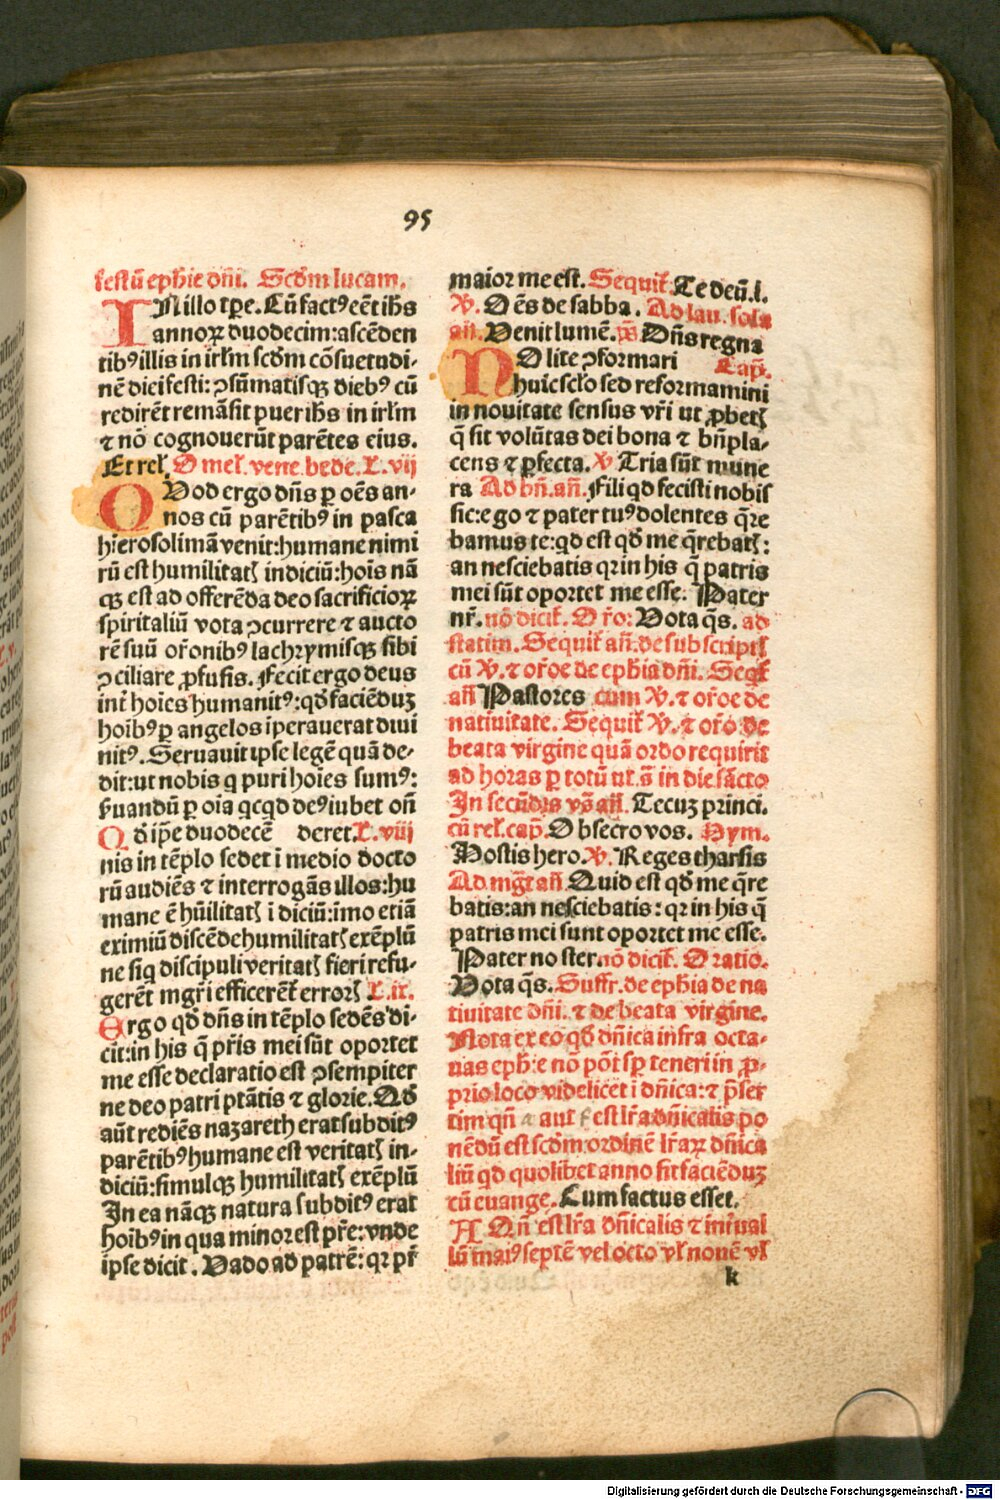 95
festū ephie dñi. Scdm lucam.
IN illo tpe. Cū factꝰ eēt ihs
annoꝝ duodecim: ascēden
tibꝰ illis in irlm scdm cōsuetudi-
nē diei festi: ꝯsūmatisqꝫ diebꝰ cū
redirēt remāsit puer ihs in irlm
⁊ nō cognouerūt parētes eius.
Et rel. Omel. vene. bede. L. vij
QUod ergo dñs ꝑ oēs an-
nos cū parētibꝰ in pasca
hierosolimā venit: humane nimi
rū est humilitatꝭ indiciū: hoīs nā
qꝫ est ad offerēda deo sacrificioꝝ
spiritaliū vota ꝯcurrere ⁊ aucto
rē suū orōnibꝰ lachrymisqꝫ sibi
ꝯciliare ꝓfusis. Fecit ergo deus
int hoīes humanitꝰ: qd faciēduꝫ
hoībꝰ ꝑ angelos īperauerat diui
nitꝰ. Seruauit ipse legē quā de-
dit: ut nobis q puri hoīes sumꝰ:
ẜuandū ꝑ oīa qcqd deꝰ iubet oñ
Qd ipē duodecē deret. L. viij
nis in tēplo sedet ī medio docto
rū audiēs ⁊ interrogās illos: hu
mane ē hūilitatꝭ īdiciū: imo etiā
eximiū discēde humilitatꝭ exēplū
ne siq discipuli veritatꝭ fieri refu-
gerēt mgri efficerēt errorꝭ L. ix.
Ergo qd dñs in tēplo sedēs di-
cit: in his q̄ pr̄is mei sūt oportet
me esse declaratio est ꝯsempiter
ne deo patri ptātis ⁊ glorie. Qd
aūt rediēs nazareth erat subditꝰ
parētibꝰ humane est veritatꝭ in-
diciū: simulqꝫ humilitatꝭ exēplū
In ea nāqꝫ natura subditꝰ erat
hoībꝰ in qua minor est pr̄e: vnde
ipse dicit. Vado ad patrē: qꝛ pr̄
maior me est. Sequit Te deū. l.
℣. Oēs de sabba. Ad lau. sola
añ. Venit lumē. ps Dñs regna
NOlite ꝯformari Cap.
huic sclo sed reformamini
in nouitate sensus vr̄i ut ꝓbetꝭ
q̄ sit volūtas dei bona ⁊ bn̄pla-
cens ⁊ ꝑfecta. ℣ Tria sūt mune
ra Ad bñ. añ. Fili qd fecisti nobis
sic: ego ⁊ pater tuꝰ dolentes q̄re
bamus te: qd est qd me q̄rebatꝭ:
an nesciebatis qꝛ in his q̄ patris
mei sūt oportet me esse. Pater
nr̄. nō dicit. Or̄o: Vota q̄s. ad
statim. Sequit añ. de subscriptꝭ
cū ℣. ⁊ or̄oe de ephia dñi. Seqt
añ Pastores cum ℣. ⁊ or̄oe de
natiuitate. Sequit ℣. ⁊ or̄o de
beata virgine quā ordo requirit
ad horas ꝑ totū ut s̄ in die sācto
In secūdis vs̄ añ. Tecuꝫ princi.
cū rel. cap. Obsecro vos. Hym.
Hostis hero. ℣. Reges tharsis
Ad mgt añ Quid est qd me q̄re
batis: an nesciebatis: qꝛ in his q̄
patris mei sunt oportet me esse.
Pater noster. nō dicit. Oratio.
Vota q̄s. Suffr. de ephia de na
tiuitate dñi. ⁊ de beata virgine.
Nota ex eo qd dñica infra octa-
uas eph̄ie nō pōt sꝑ teneri in ꝓ-
prio loco videlicet ī dñica: ⁊ p̄ser
tim qñ aut est lr̄a dñicalis po
nēdū est scdm ordinē lr̄aꝝ dñica
liū qd quolibet anno sit faciēduꝫ
cū euange. Cum factus esset.
A Qñ est lr̄a dñicalis ⁊ īteruал
lū maiꝰ septē vel octo vl nouē vl
k
Digitalisierung gefördert durch die Deutsche Forschungsgemeinschaft - DFG